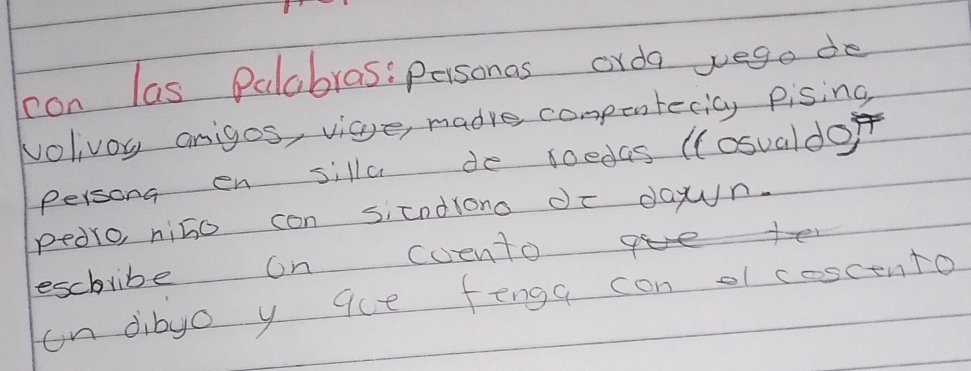 con las Palabras: personas orda juego de
volivoy amigos, viaye, madre compentecia, Pisina,
persona en silla de roedas ((osvaldo))
pedro, niño con sindrono de daxun.
escbribe un cuento que ter
un dibujo y que tenga con el coscento